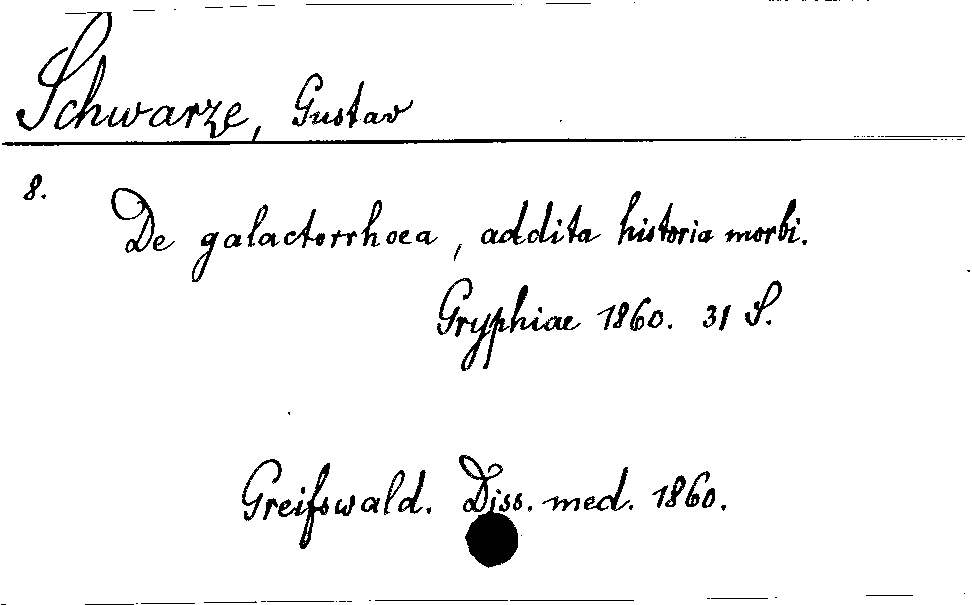 Schwarze, Gustav
8.
De galactorrhoea, addita historia morbi.
Gryphiae 1860. 31 S.
Greifswald. Diss. med. 1860.